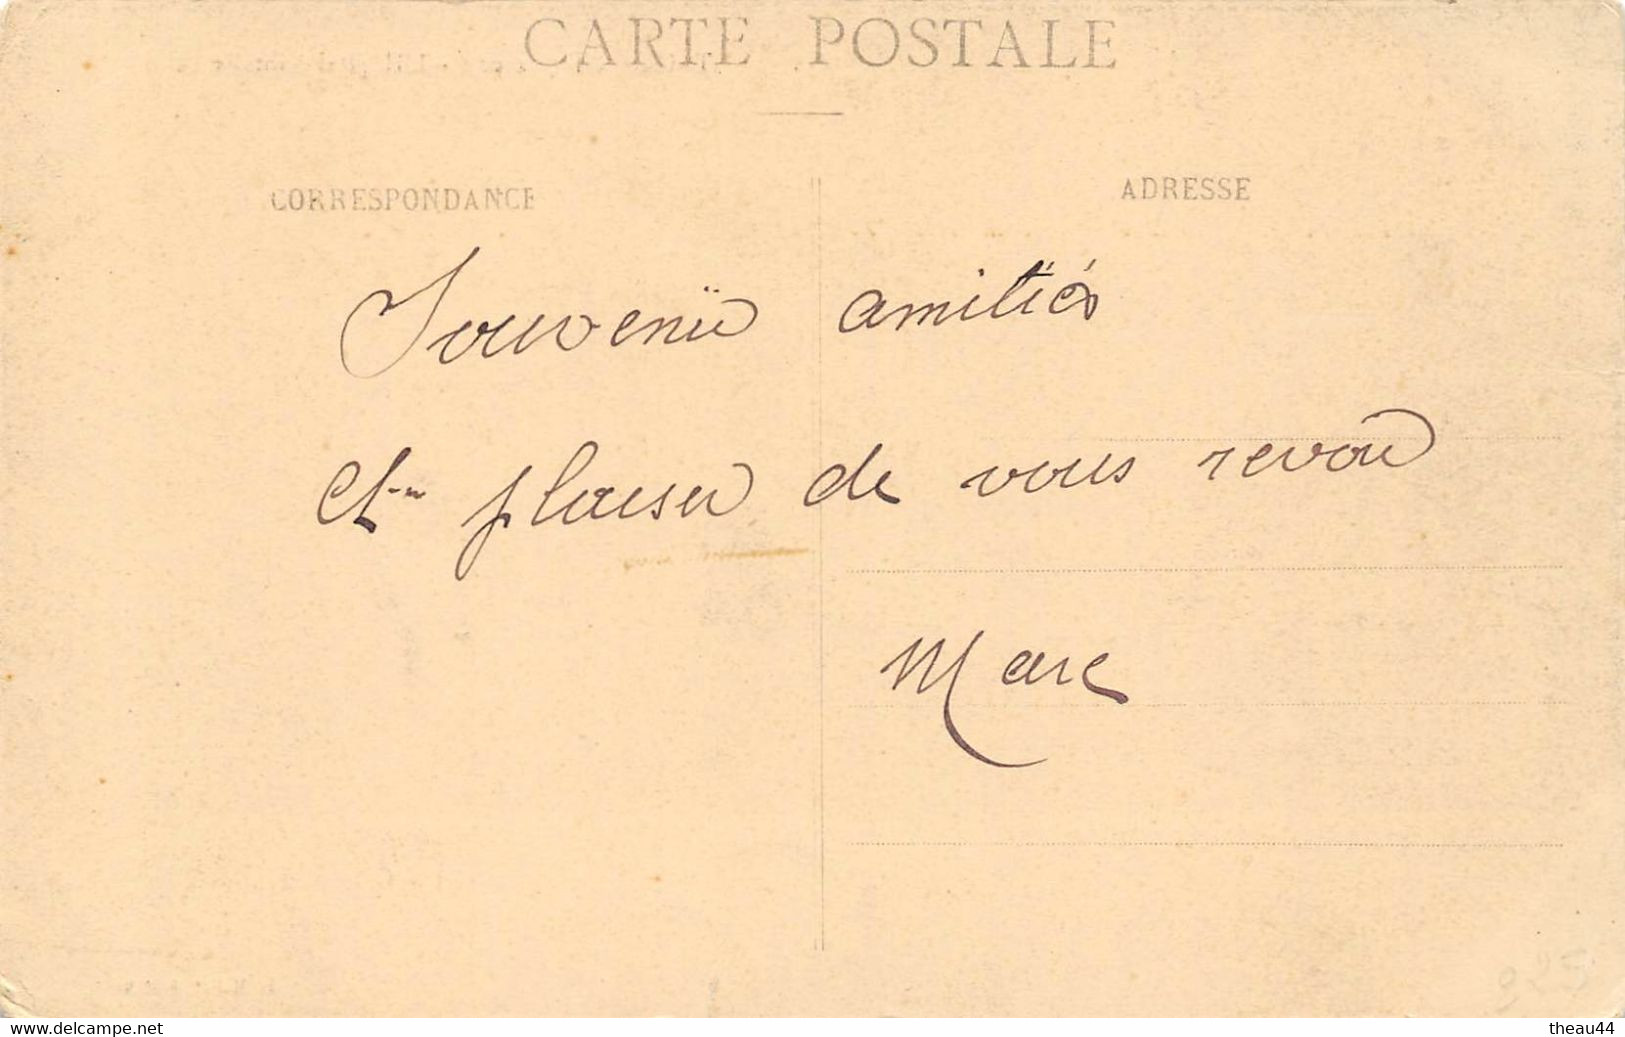 CARTE POSTALE
CORRESPONDANCE
ADRESSE
Souvenir amitiés
et plaisir de vous revoir
Marc
225
www.delcampe.net
theau44